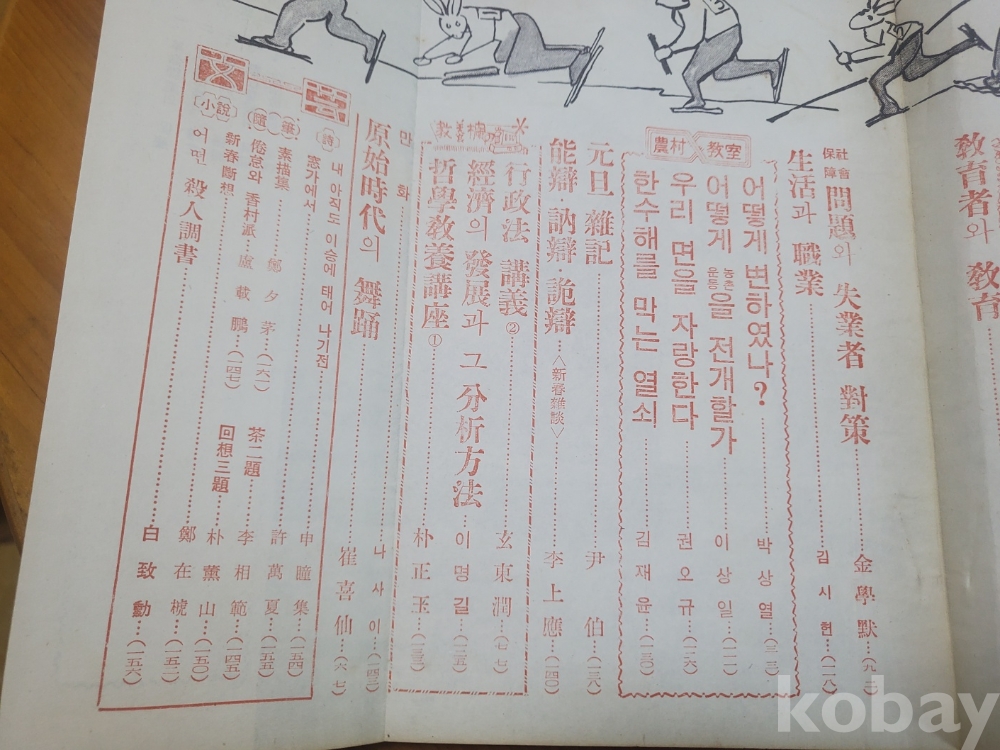 教育者와 敎育
社會保障 問題와 失業者 對策……金學默…(九二)
生活과 職業……김시헌…(二八)
農村 教室
어떻게 변하였나?……박상열
어떻게 농촌운동을 전개할가……이상일
우리 면을 자랑한다……권오규…(一二六)
한수해를 막는 열쇠……김재윤…(一三〇)
元旦 雜記……尹伯…(一三八)
能辯·訥辯·詭辯 <新春雜談>……李上應…(一四〇)
行政法 講義②……玄東潤
經濟의 發展과 그 分析方法……이명길
哲學教養講座①……朴正玉
만화……나사이…(一四三)
原始時代의 舞踊……崔喜仙…(六七)
文
(詩) 내 아직도 이슬에 태어 나기전……申瞳集…(一五四)
窓가에서……許萬夏…(一五五)
(隨筆) 素描集……鄭夕芽…(一六一) 茶二題……李相範…(一四五)
倦怠와 香村派…盧載鵬…(一四七) 回想三題……朴薰山…(一五〇)
新春斷想……鄭在虎…(一五二)
(小說) 어떤 殺人調書……白致勳…(一五六)
kobay